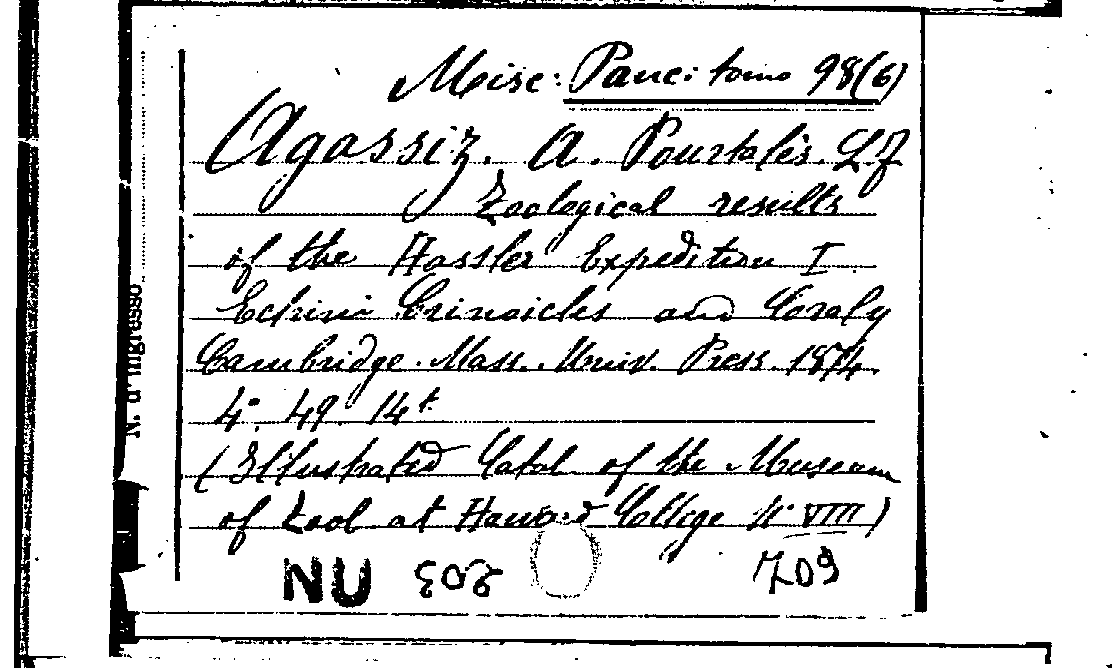 Misc: Panc: tomo 98(6)
Agassiz. A. Pourtalès. L F
Zoological results
of the Hassler Expedition I
Echini Crinoides and Coraly
Cambridge. Mass. Univ. Press. 1874
4° 49. 14t.
(Illustrated Catal of the Museum
of Zool at Harvard College N° VIII)
NU 709
N. d'ingresso